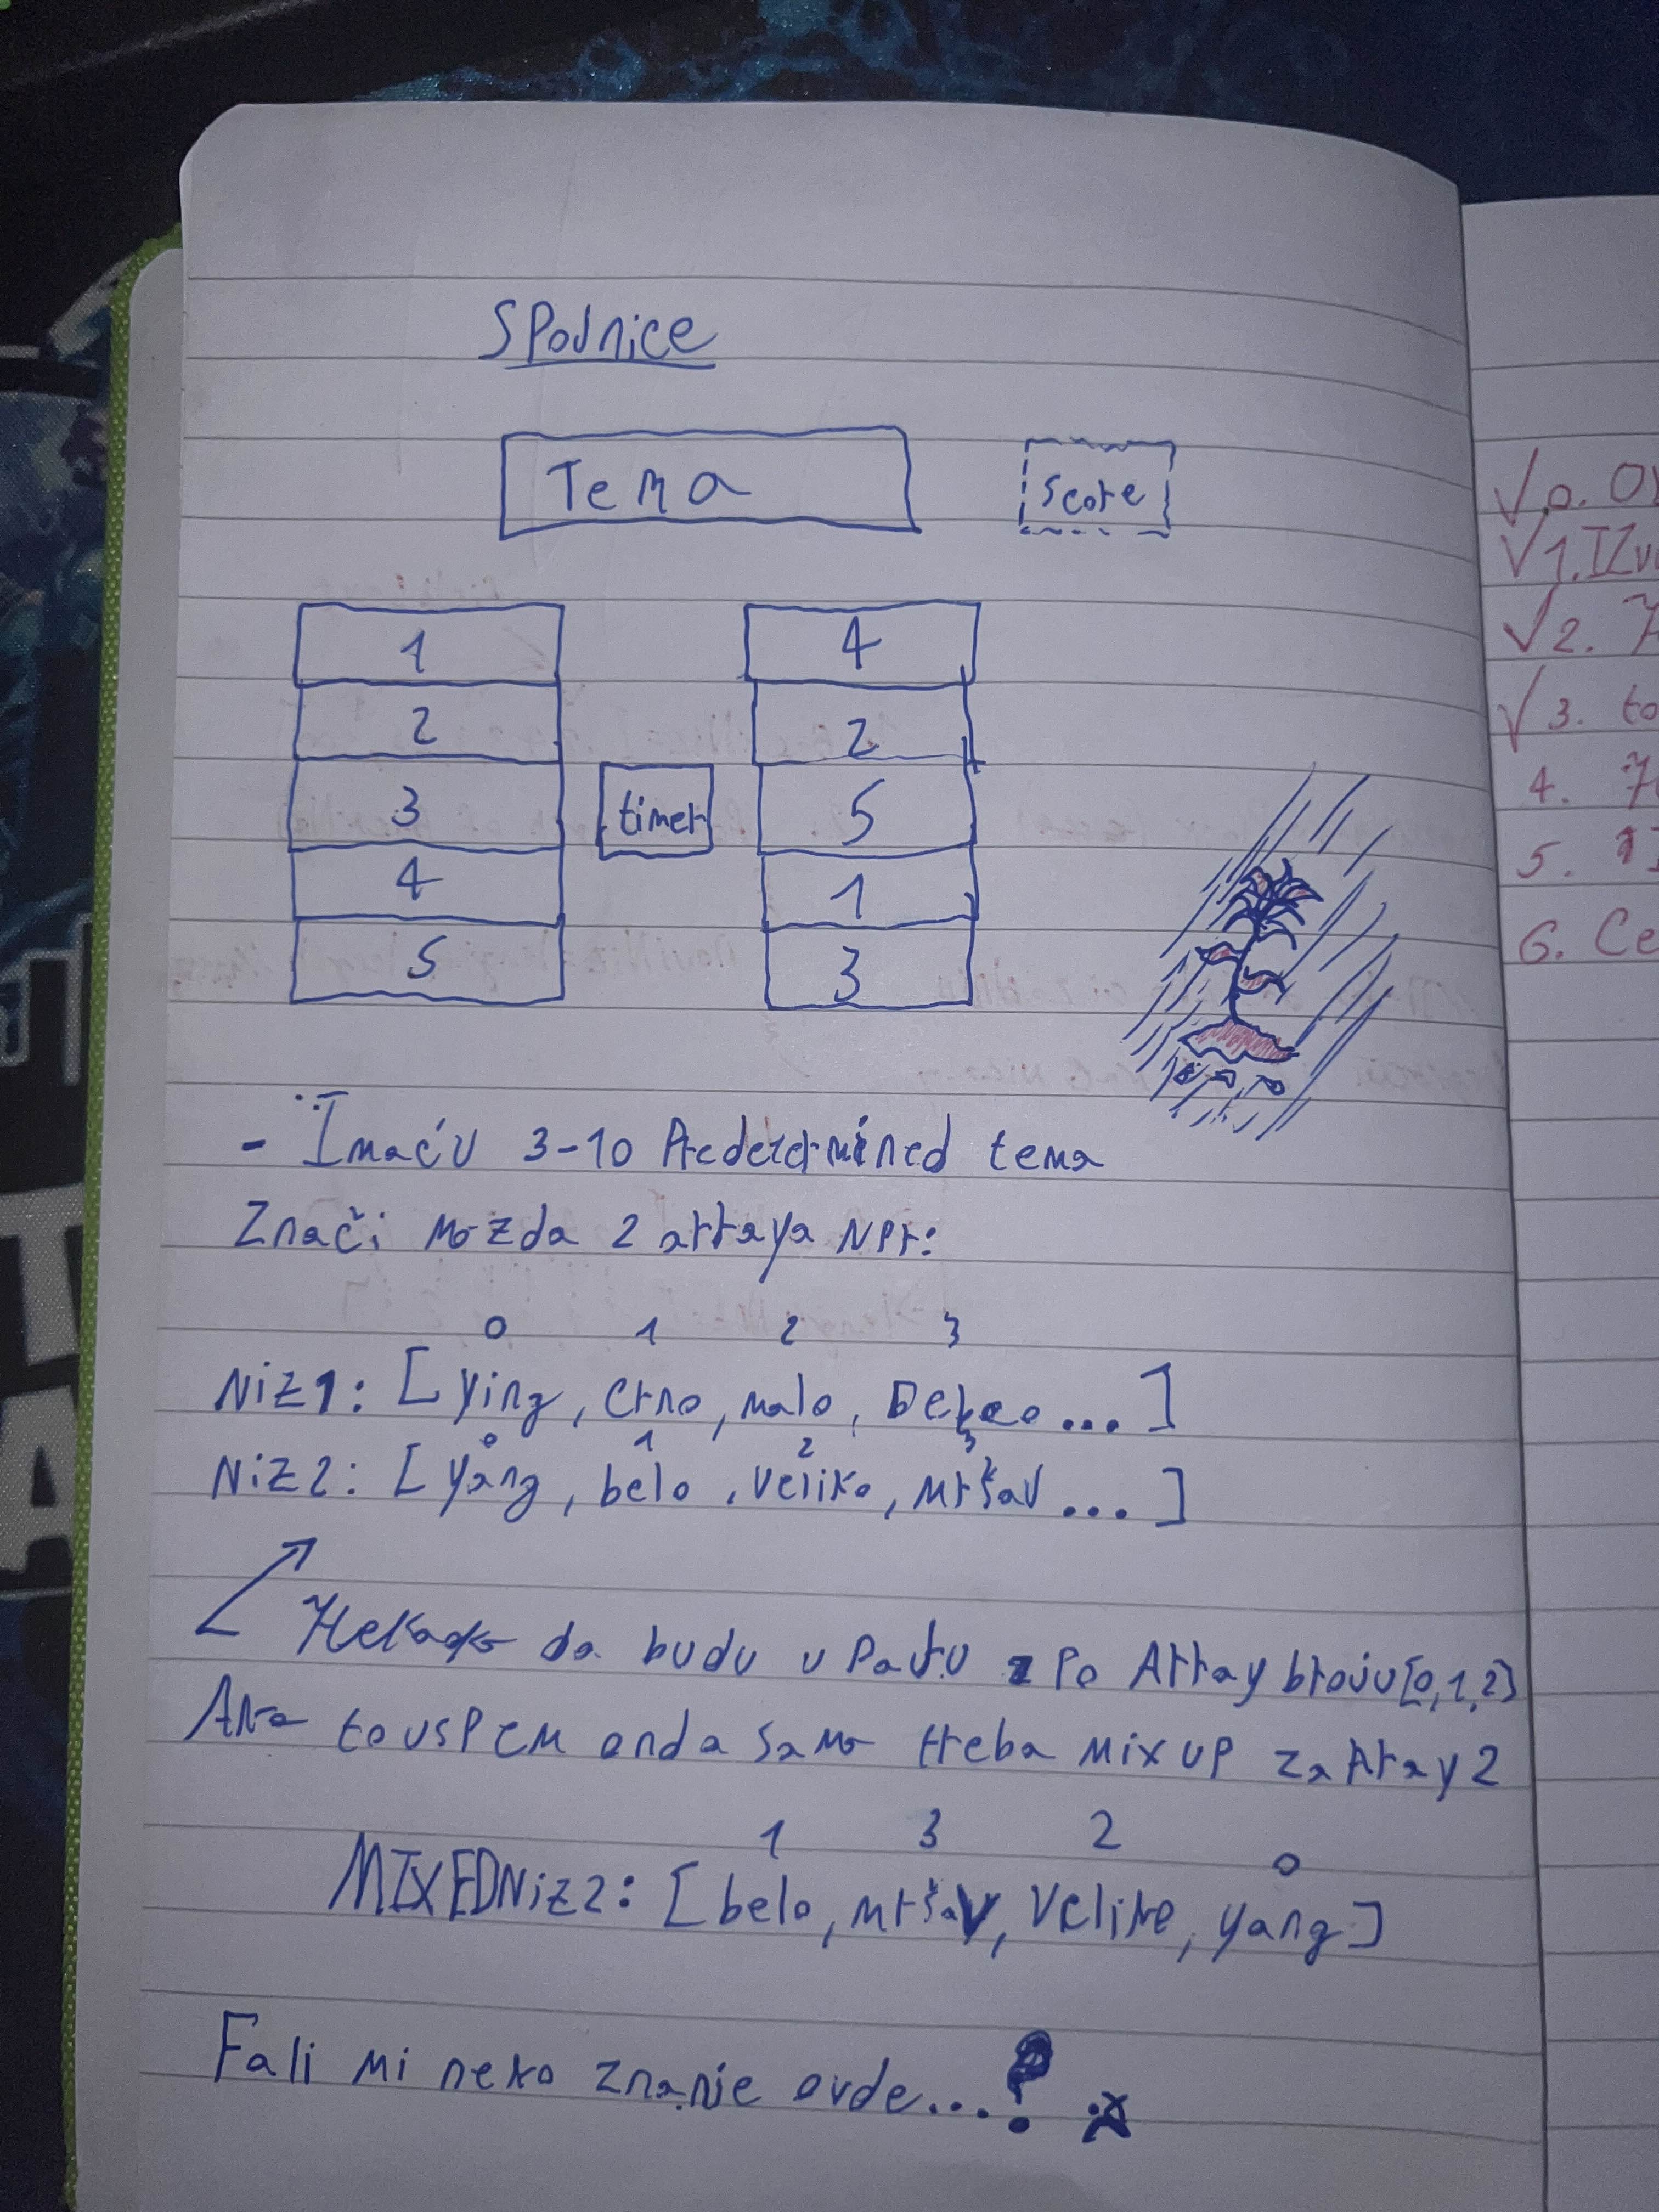 SPOJNICE
Tema
score
1
2
3
4
5
timer
4
2
5
1
3
- Imaću 3-10 Predetermined tema
Znači možda 2 arraya npr:
0 1 2 3
Niz1: [ying, crno, malo, Debeo...]
0 1 2 3
Niz2: [yang, belo, veliko, mršav...]
Nekako da budu u Paru po Array broju [0,1,2]
Ako to uspem onda samo treba mix up za Array 2
1 3 2 0
MIXEDNiz2: [belo, mršav, veliko, yang]
Fali mi neko znanje ovde...?
√ 0.
√ 1.
√ 2.
√ 3. to
4.
5.
6. Ce